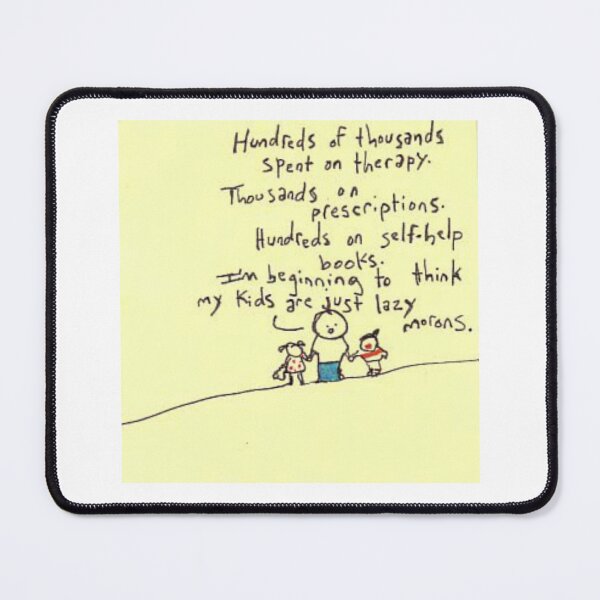 Hundreds of thousands
spent on therapy.
Thousands on
prescriptions.
Hundreds on self-help
books.
I'm beginning to think
my kids are just lazy
morons.